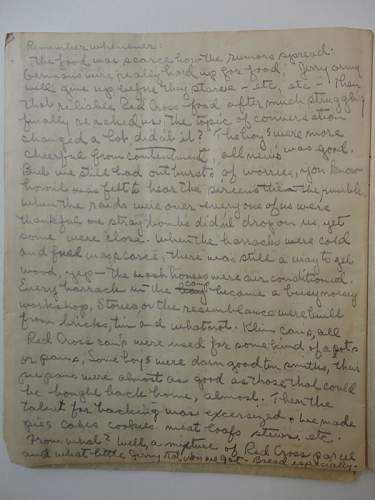 Remember whenever:
The food was scarce how the rumors spread:
Germans were really hard up for food, Jerry army
will give up before they starve - etc, etc - Then
that reliable Red Cross food after much struggling
finally reached us, the topic of conversation
changed a lot didn't it? The boys were more
cheerful from contentment, all news was good.
But we still had outbursts of worries, you know
how it was felt to hear the sirens the rumble
when the raids were over - everyone of us were
thankful one stray bombs didn't drop on us, yet
some were close. When the barracks were cold
and fuel was scarce, there was still a way to get
wood, yep - the wash houses were air conditioned.
Every barrack in the camp became a busy noisy
workshop, Stoves or the resemblance were built
from bricks, tin and what not. Klim cans, all
Red Cross cans were used for some kind of a pots
or pans, Some boys were darn good tin smiths, this
pie pans were almost as good as those that could
be bought back home, almost. Then the
talent for backing was excersized, we made
pies cakes cookies meat loafs stews etc.
From what? Well, a mixture of Red Cross parcel
and what little Jerry rations we got - Bread especially.